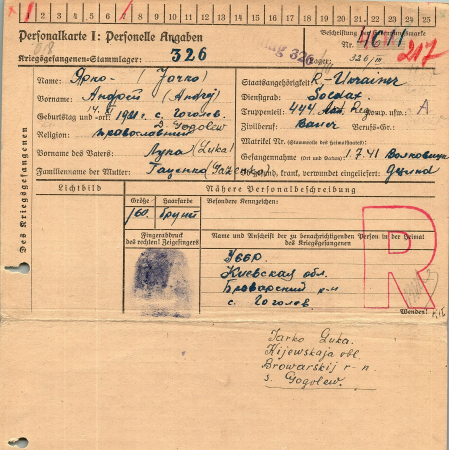 1 2 3 4 5 6 7 8 9 10 11 12 13 14 15 16 17 18 19 20 21 22 23 24 25
Personalkarte I: Personelle Angaben
Kriegsgefangenen-Stammlager: 326
Beschriftung der Erkennungsmarke
Nr. 217
Lager: 326/
Des Kriegsgefangenen
Name: Ярко (Jarko)
Vorname: Андрей (Andrej)
Geburtstag und -ort: 1921 с. Гоголев
D. Gogolew
Religion: православний
Vorname des Vaters: Лука (Luka)
Familienname der Mutter: Гаценко
Staatsangehörigkeit: R.-Ukrainer
Dienstgrad: Soldat
Truppenteil: 444 Art. Reg. Komp. usw. A
Zivilberuf: Bauer Berufs-Gr.:
Matrikel Nr. (Stammrolle des Heimatstaates):
Gefangennahme (Ort und Datum): 1.7.41
Ob gesund, krank, verwundet eingeliefert: Gesund
Lichtbild
Nähere Personalbeschreibung
Größe Haarfarbe Besondere Kennzeichen:
160. Брунет
Fingerabdruck
des rechten! Zeigefingers
Name und Anschrift der zu benachrichtigenden Person in der Heimat
des Kriegsgefangenen
УССР.
Киевская обл.
Броварский р-н
с. Гоголев
R
Wenden!
Jarko Luka.
Kijewskaja obl.
Browarskij r-n
s. Gogolew.